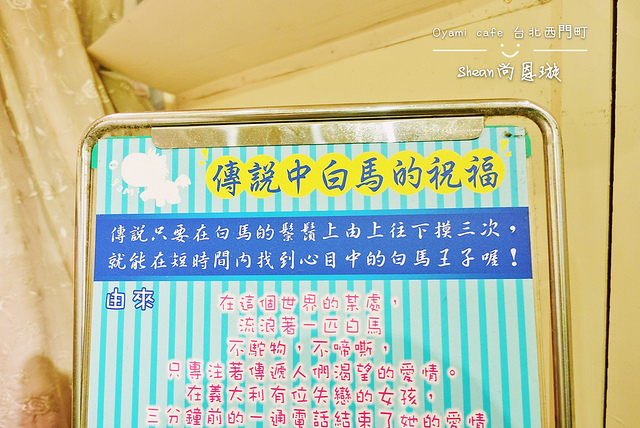 Oyami cafe 台北西門町
Shean尚恩璇
傳說中白馬的祝福
傳說只要在白馬的鬃鬚上由上往下摸三次，
就能在短時間內找到心目中的白馬王子喔！
由來
在這個世界的某處，
流浪著一匹白馬
不駝物，不啼嘶，
只專注著傳遞人們渴望的愛情。
在義大利有位失戀的女孩，
三分鐘前的一通電話結束了她的愛情